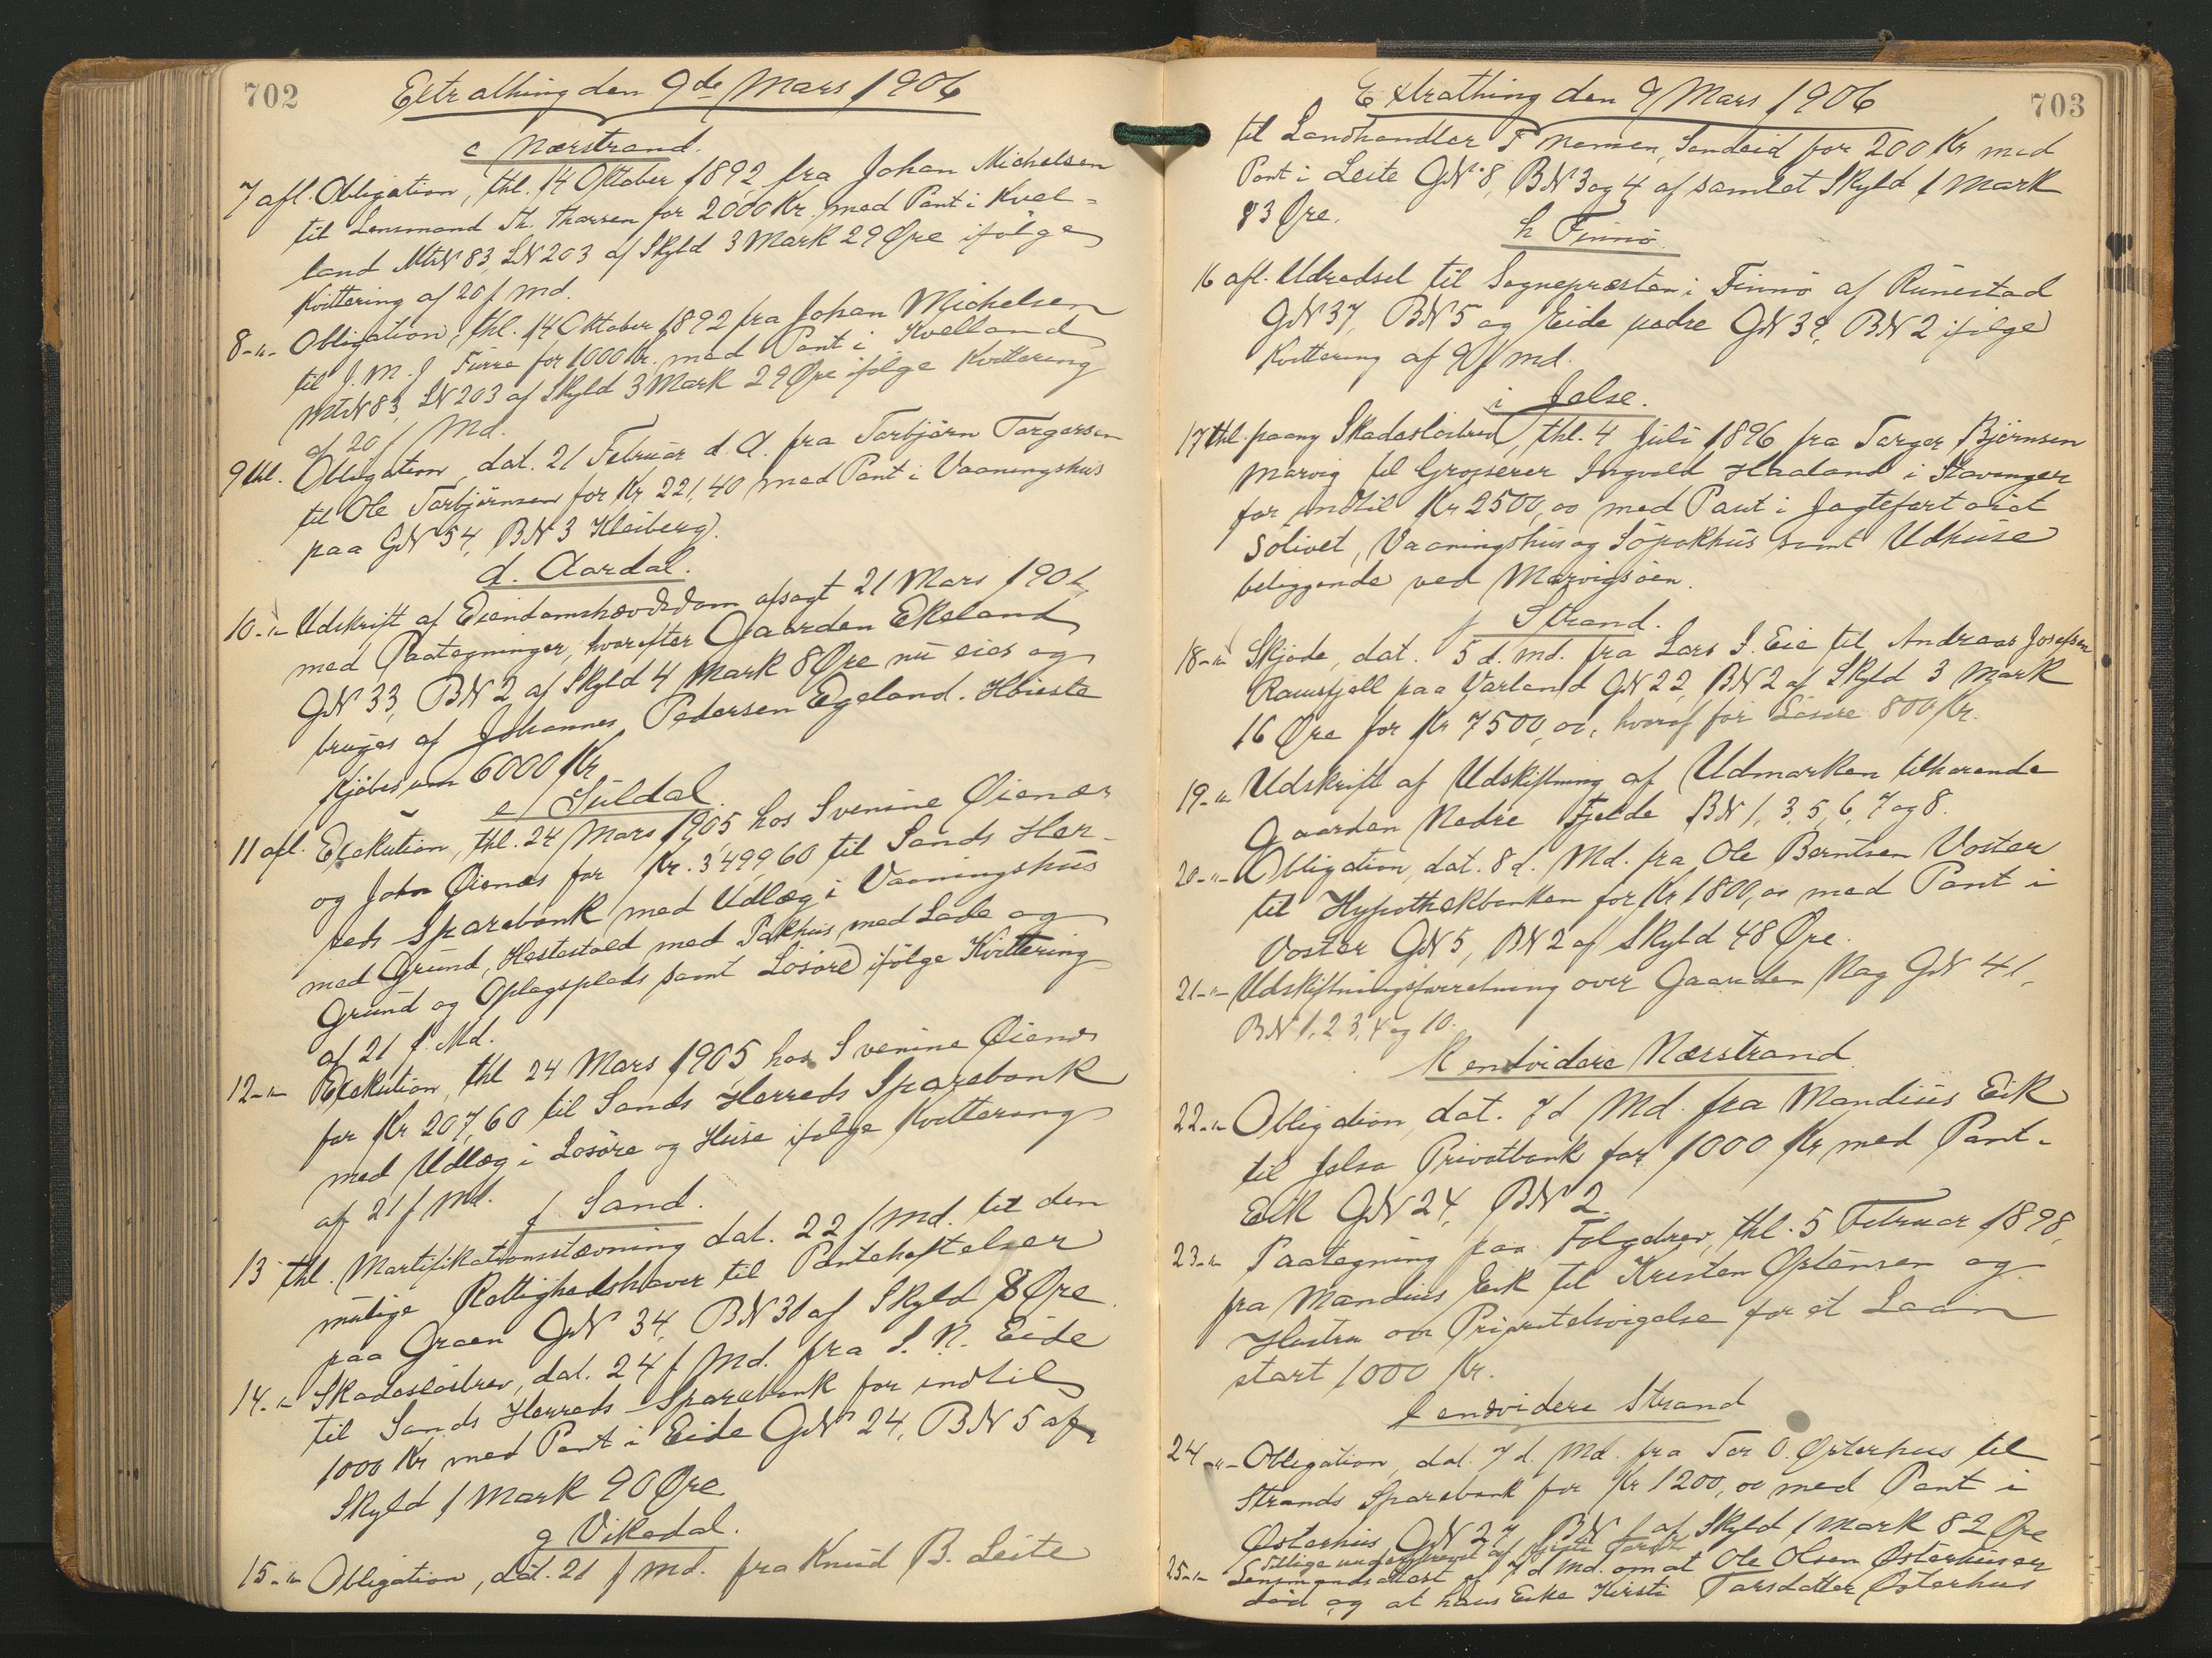 702
Extrathing den 9de Mars 1906
c Nærstrand.
7 afl. Obligation, thl. 14 Oktober 1892 fra Johan Michelsen
til Lensmand Th. Thorsen for 2000 Kr. med Pant i Kvel-
land MtrN 83, LN 203 af Skyld 3 Mark 29 Øre ifølge
Kvittering af 20 f Md.
8 -"- Obligation, thl. 14 Oktober 1892 fra Johan Michelsen
til J. M. J Furre for 1000 Kr. med Pant i Kvelland
MtrN 83, LN 203 af Skyld 3 Mark 29 Øre ifølge Kvittering
af 20 f Md.
9 thl. Obligation, dat. 21 Februar d. A. fra Torbjörn Torgersen
til Ole Torbjörnsen for Kr. 221,40 med Pant i Vaaningshus
paa GN 54, BN 3 Kleiberg.
d. Aardal.
10 -"- Udskrift af Eiendomshævdsdom afsagt 21 Mars 190
med Paategninger, hvorefter Gaarden Ekeland
GN 33, BN 2 af Skyld 4 Mark 8 Øre nu eies og
bruges af Johannes Pedersen Egeland. Høieste
Kjøbesum 6000 Kr
e/ Suldal.
11 afl. Exekution, thl. 24 Mars 1905 hos Svenine Øienæs
og John Øienæs for Kr. 3499,60 til Sands Her-
reds Sparebank med Udlæg i Vaaningshus
med Grund, Hestestald med Pakhus, med Lade og
Grund og Oplagsplads samt Løsøre ifølge Kvittering
af 21 f. Md.
12 -"- Exekution, thl 24 Mars 1905 hos Svenine Øienæs
for Kr 207,60 til Sands Herreds Sparebank
med Udlæg i Løsøre og Huse ifølge Kvittering
af 21 f Md.
f Sand.
13 thl. Mortifikationsstævning dat. 22 f Md. til den
mulige Rettighedshaver til Pantehæftelser
paa Groen GN 34, BN 31 af Skyld 8 Øre.
14 -"- Skadesløsbrev, dat. 24 f Md. fra S. N. Eide
til Sands Herreds Sparebank for indtil
1000 Kr med Pant i Eide GN 24, BN 5 af
Skyld 1 Mark 90 Øre
g Vikedal.
15 -"- Obligation, dat. 21 f Md. fra Knud B. Leite
703
Extrathing den 9/ Mars 1906
til Landhandler Nansen, Sandeid for 200 Kr med
Pant i Leite GN 8, BN 3 og 4 af samlet Skyld 1 Mark
83 Øre.
h Finnö.
16 afl. Udredsel til Sognepræsten i Finnö af Runestad
GN 37, BN 5 og Eide nedre GN 39, BN 2 ifølge
Kvittering af 9/f md.
i Jelse.
17 thl. paany Skadesløsbrev, thl. 4 Juli 1896 fra Torger Björnsen
Marvig til Grosserer Ingvald Haaland i Stavanger
for indtil Kr 2500,00 med Pant i Jagtefartøiet
Solivet, Vaaningshus og Söpakhus samt Udhuse
beliggende ved Marvigsöen.
j Strand.
18 -"- Skjøde, dat. 5 d. md. fra Lars S. Eie til Andreas Josefsen
Ramsfjell paa Varland GN 22, BN 2 af Skyld 3 Mark
16 Øre for Kr 7500,00, hvoraf for Løsøre 800 Kr.
19 -"- Udskrift af Udskiftning af Udmarken tilhørende
Gaarden Nedre Tjelde BN 1, 3, 5, 6, 7 og 8.
20 -"- Obligation, dat. 8 d. Md. fra Ole Berntsen Voster
til Hypothekbanken for Kr 1800,00 med Pant i
Voster GN 5, BN 2 af Skyld 48 Øre.
21 -"- Udskiftningsforretning over Gaarden Nag GN 41,
BN 1, 2, 3, 4 og 10.
k endvidere Nærstrand.
22 -"- Obligation, dat. 7 d Md. fra Mandius Eik
til Jelsa Privatbank for 1000 Kr med Pant.
Eik GN 24, BN 2.
23 -"- Paategning paa Folgebrev, thl. 5 Februar 1898,
fra Mandius Eik til Kristen Østensen og
Hustru om Prioritetsvigelse for et Laan
stort 1000 Kr.
l endvidere Strand
24 -"- Obligation, dat. 7 d. Md. fra Tor O. Østerhus til
Strands Sparebank for Kr 1200,00 med Pant i
Østerhus GN 27, BN 1 af Skyld 1 Mark 82 Øre
Tillige underskrevet af
25 -"- Lensmandsattest af 7 d Md. om at Ole Olsen Østerhus er
død og at hans Enke Kirsti Torsdatter Østerhus